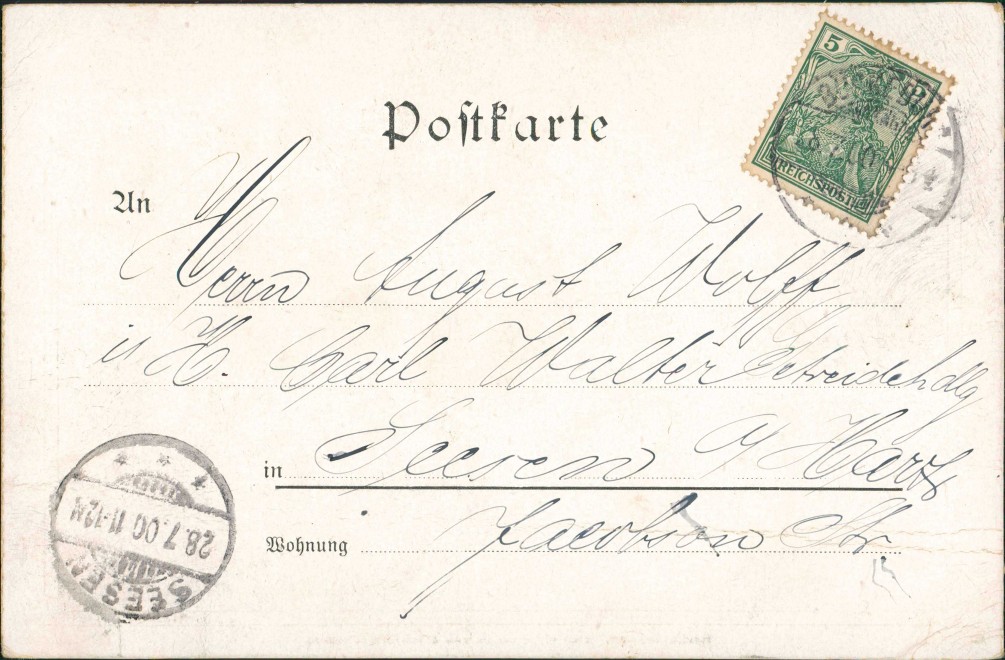 Postkarte
5
REICHSPOST
An
Herrn August Wolff
H. Carl Walter Getreidehdlg
in Seesen a/Harz
Wohnung Jacobson Str
SEESEN
28.7.00 11-12N